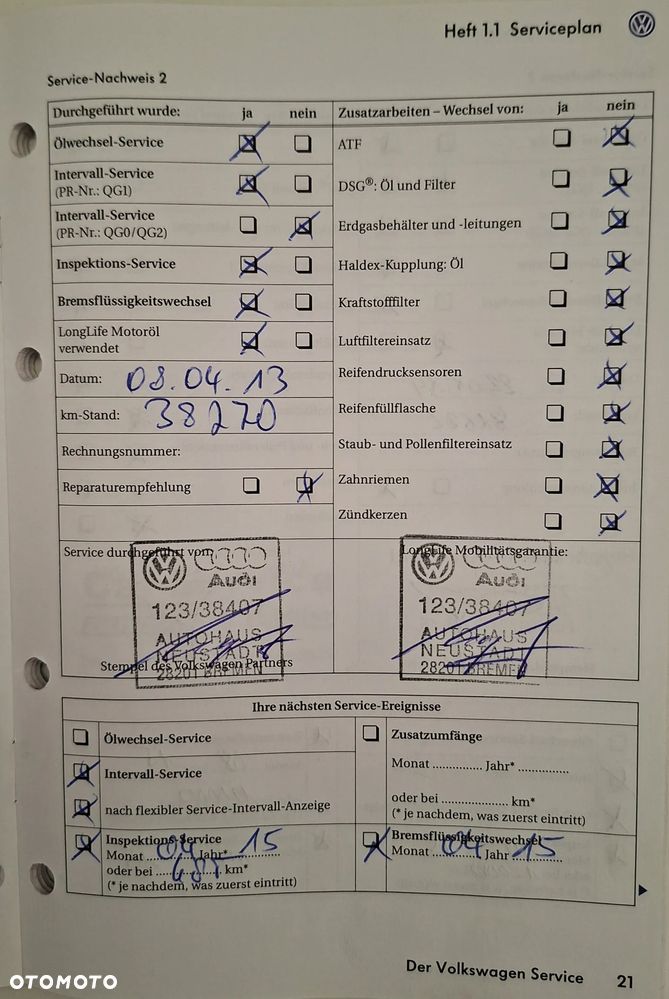 Heft 1.1 Serviceplan
Service-Nachweis 2
Durchgeführt wurde: ja nein
Ölwechsel-Service
Intervall-Service
(PR-Nr.: QG1)
Intervall-Service
(PR-Nr.: QG0/QG2)
Inspektions-Service
Bremsflüssigkeitswechsel
LongLife Motoröl
verwendet
Datum: 08.04.13
km-Stand: 38270
Rechnungsnummer:
Reparaturempfehlung
Zusatzarbeiten – Wechsel von: ja nein
ATF
DSG®: Öl und Filter
Erdgasbehälter und -leitungen
Haldex-Kupplung: Öl
Kraftstofffilter
Luftfiltereinsatz
Reifendrucksensoren
Reifenfüllflasche
Staub- und Pollenfiltereinsatz
Zahnriemen
Zündkerzen
Service durchgeführt vom
Audi
123/38407
AUTOHAUS
NEUSTADT
28201 BREMEN
Stempel des Volkswagen Partners
LongLife Mobilitätsgarantie:
Audi
123/38407
AUTOHAUS
NEUSTADT
28201 BREMEN
Ihre nächsten Service-Ereignisse
Ölwechsel-Service
Intervall-Service
nach flexibler Service-Intervall-Anzeige
Inspektions-Service
Monat 04 Jahr* 15
oder bei .................. km*
(* je nachdem, was zuerst eintritt)
Zusatzumfänge
Monat .............. Jahr* ..............
oder bei .................... km*
(* je nachdem, was zuerst eintritt)
Bremsflüssigkeitswechsel
Monat 04 Jahr 15
Der Volkswagen Service 21
OTOMOTO